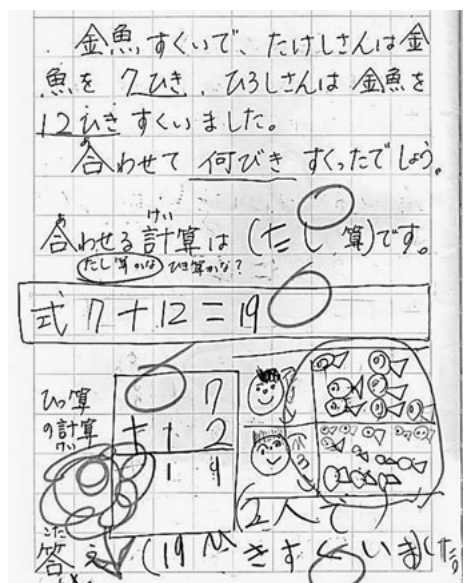 金魚すくいで、たけしさんは金
魚を7ひき、ひろしさんは金魚を
12ひきすくいました。
合わせて何びきすくったでしょう。
あ
合わせる計算は(たし算)です。
あ けい
たし算かな ひき算かな?
式 7+12=19
ひっ算
の計算
けい
7
+12
19
2人で
こた
答え(19ひきすくいました。